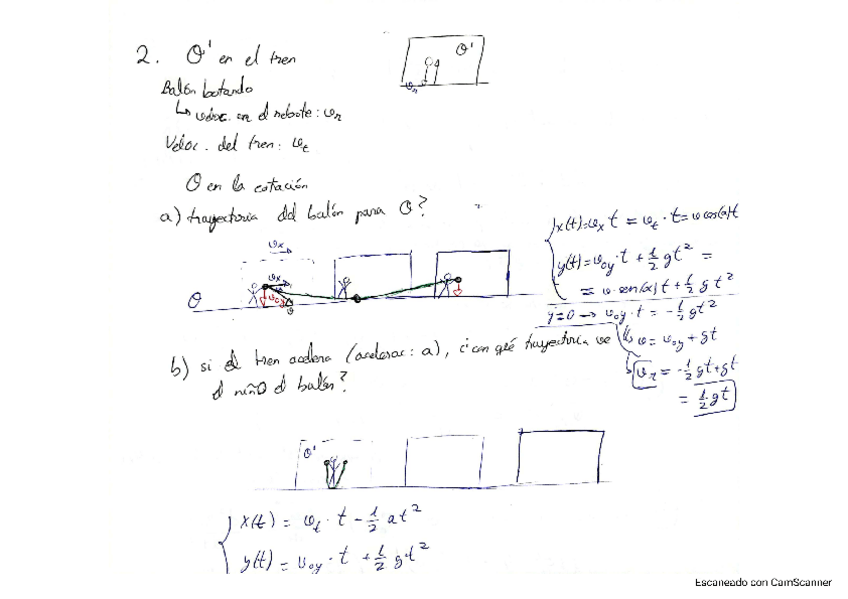 2. O' en el tren
O'
Balón botando
↳ veloc. en el rebote: v_r
v_r
Veloc. del tren: v_t
O en la estación
a) trayectoria del balón para O?
x(t) = v_x t = v_t · t = v cos(α)t
y(t) = v_oy · t + 1/2 g t² =
= v · sen(α) t + 1/2 g t²
y=0 → v_oy · t = -1/2 g t²
v = v_oy + gt
v_r = -1/2 gt + gt
= 1/2 gt
v_x
v_x
v_oy
v
O
b) si el tren acelera (acelerac: a), ¿con qué trayectoria ve
el niño el balón?
O'
x(t) = v_t · t - 1/2 at²
y(t) = v_oy · t + 1/2 gt²
Escaneado con CamScanner